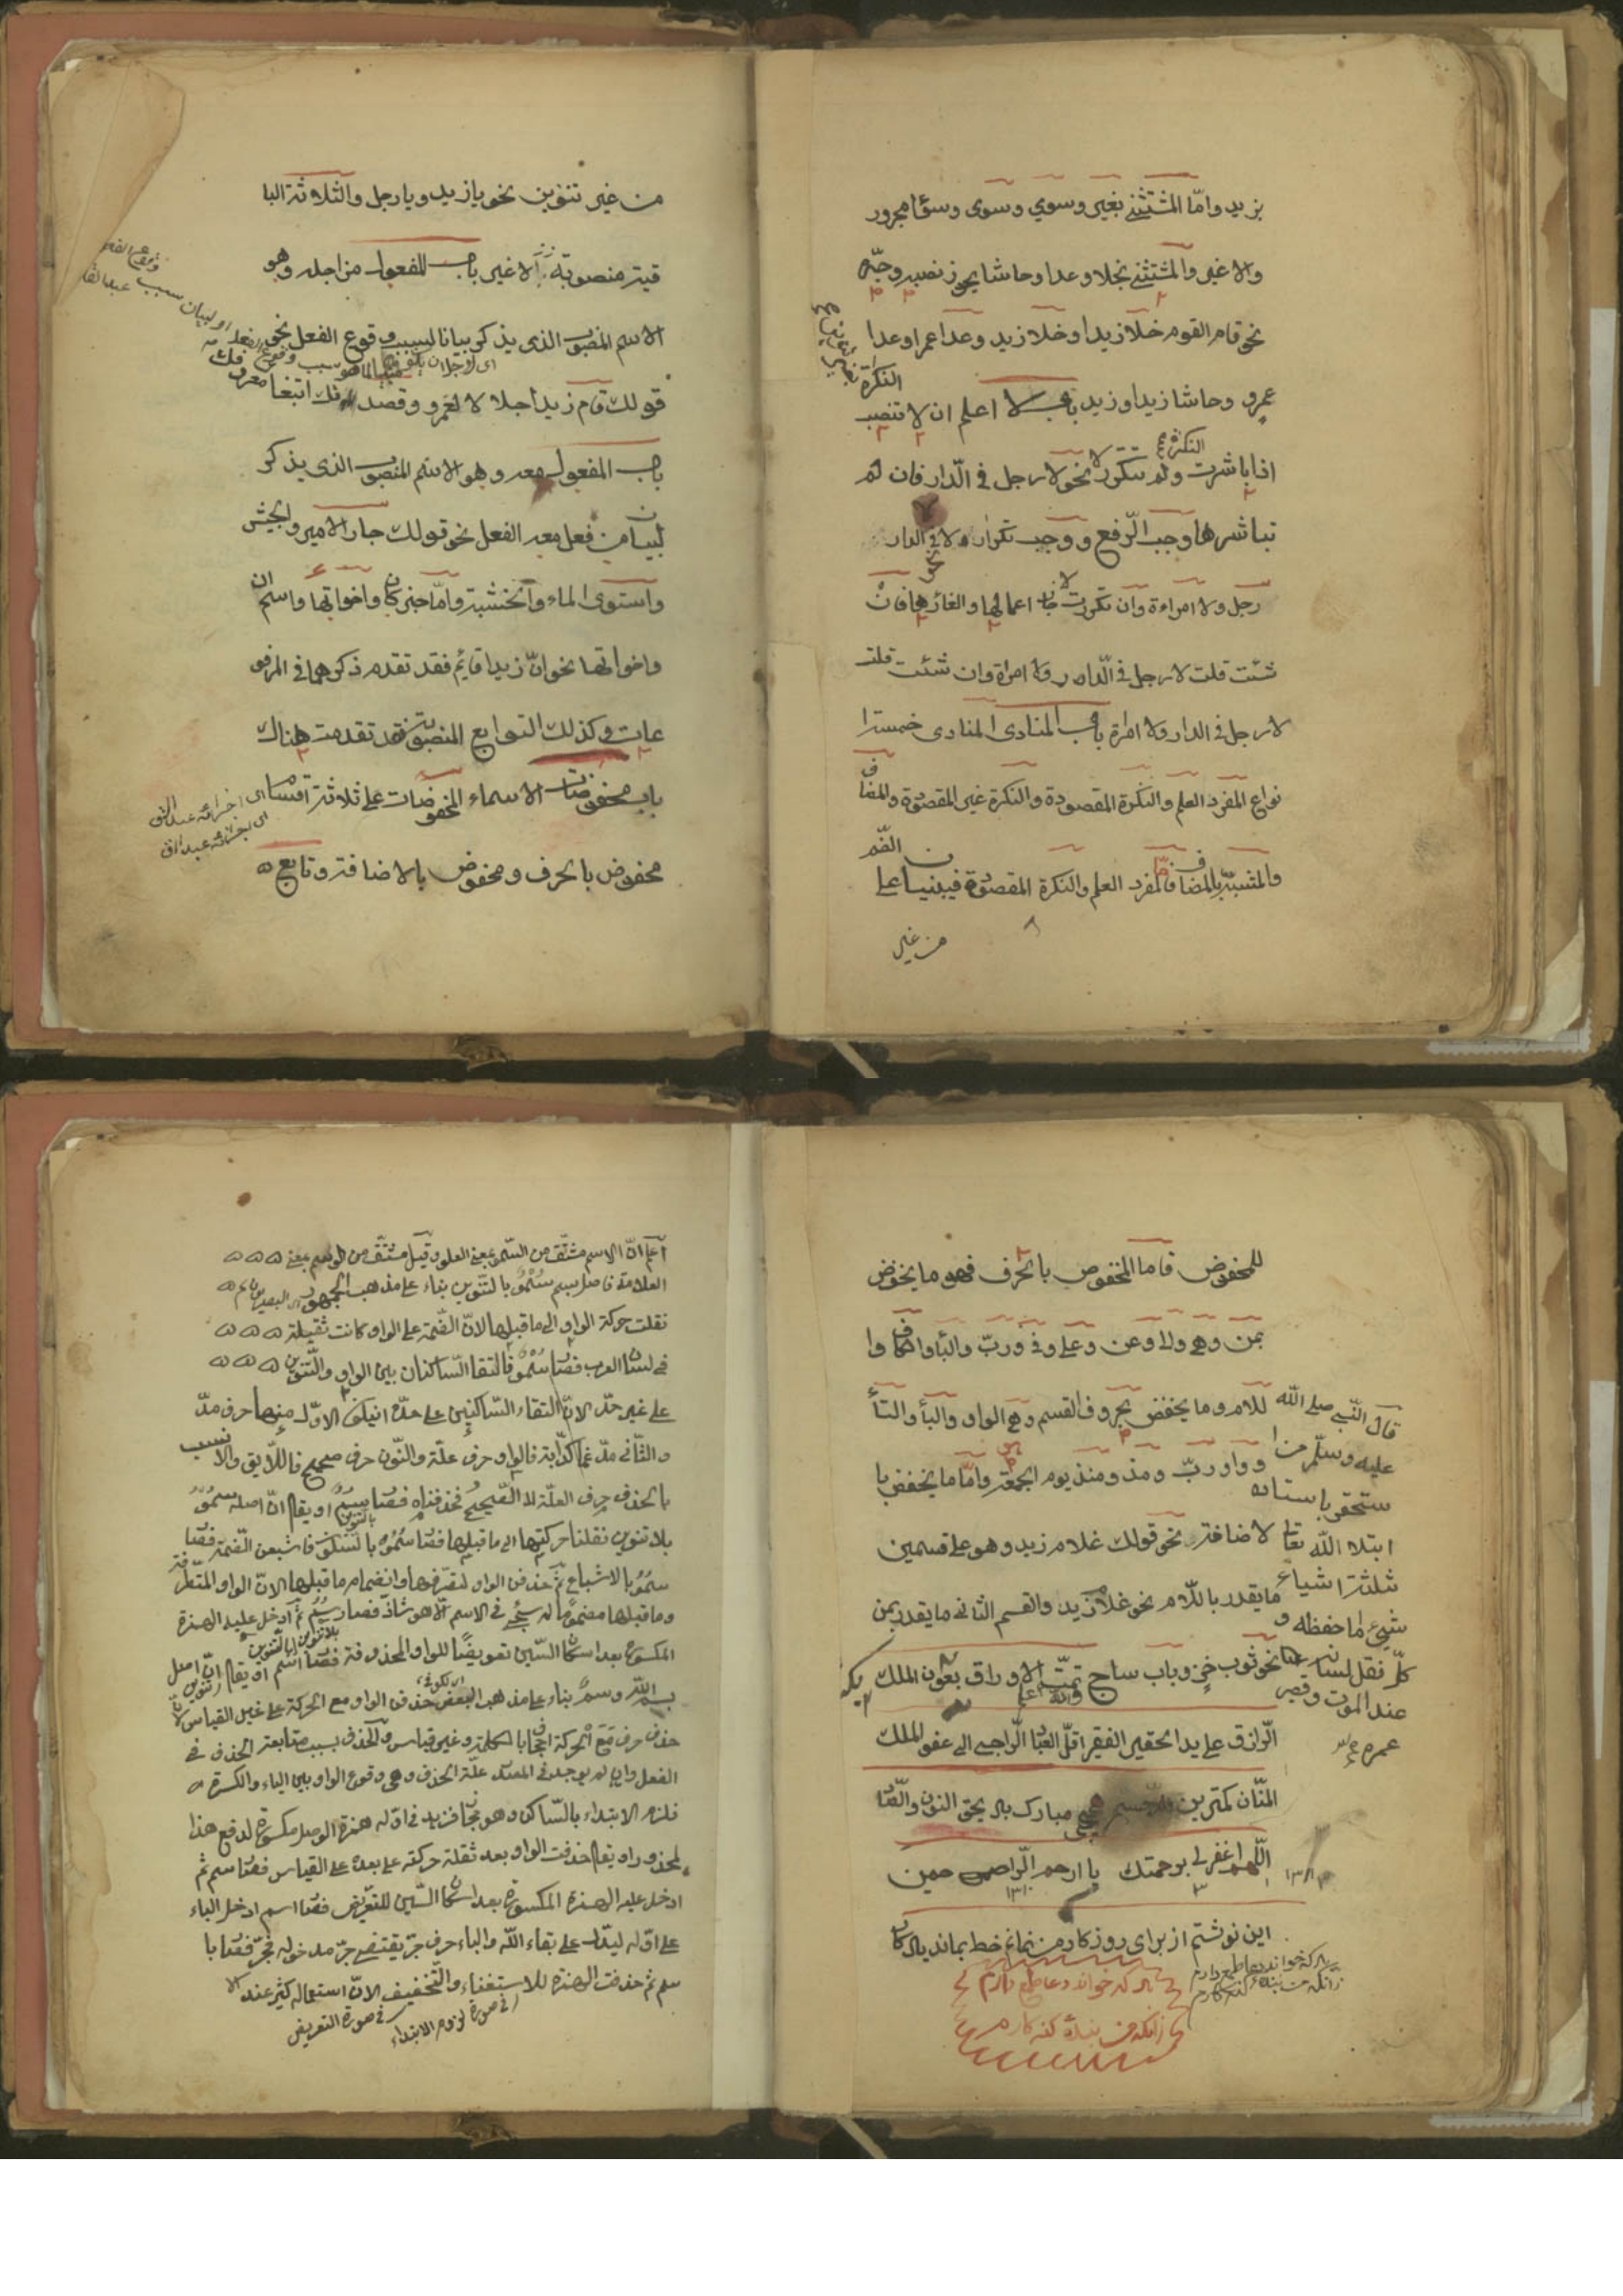 بزيد وامّا المستثنى بغير وسوي وسوى وسوا مجرور
والا غير والمستثنى بخلا وعدا وحاشا يجوز نصبه وجرّه
نحو قام القوم خلا زيدا وخلا زيد وعدا عمرا وعدا
النكرة بغير تنوين
عمرو وحاشا زيدا وزيد باب لا اعلم ان لا تنصب
النكرة
اذا باشرت ولم تتكرر لا نحو لا رجل في الدّار فان لم
تباشرها وجب الرّفع ووجب تكرار لا نحو لا في الدار
رجل ولا امراءة وان تكررت لا جاز اعمالها والغائها فان
شئت قلت لا رجل في الدّار ولا امراة وان شئت قلت
لا رجل في الدار ولا امراة باب المنادى المنادى خمسة ا
نواع المفرد العلم والنكرة المقصودة والنكرة غير المقصودة والمضاف
والمشبّه بالمضاف فامّا المفرد العلم والنكرة المقصودة فيبنيان على الضّم
من غير
من غير تنوين نحو يا زيد ويا رجل والثلاثة البا
قية منصوبة لا غير باب المفعول من اجله وهو
الاسم المنصوب الذى يذكر بيانا لسبب وقوع الفعل نحو
قولك قام زيد اجلالا لعمرو وقصدتك ابتغا معروفك
باب المفعول معه وهو الاسم المنصوب الذى يذكر
لبيان من فعل معه الفعل نحو قولك جاء الامير والجيش
واستوى الماء والخشبة وامّا خبر كان واخواتها واسم ان
واخواتها نحو انّ زيدا قايم فقد تقدم ذكرهما في المرفو
عات وكذلك التوابع المنصوبة فقد تقدمت هناك
باب مخفوضات الاسماء المخفوضات على ثلاثة اقسام
مخفوض بالحرف ومخفوض بالاضافة وتابع
للمخفوض فاما المخفوض بالحرف فهو ما يخفض
بمن وهي والى وعن وعلى وفي وربّ والبأ والكاف وا
للام وما يخفض بحروف القسم وهي الواو والبأ والتأ
وواو ربّ ومذ ومنذ يوم الجمعة وامّا ما يخفض با
لاضافة نحو قولك غلام زيد وهو على قسمين
ما يقدر باللّام نحو غلام زيد والقسم الثانى ما يقدر بمن
نحو ثوب خزٍ وباب ساج تمّت الاوراق بعون الملك
الرّازق على يد الحقير الفقير اقلّ العباد الرّاجى الى عفو الملك
المنّان كمترين
مبارك باد بحق النون والصّاد
اللّهم اغفر لى برحمتك يا ارحم الرّاحمين
١٣١٠
اين نوشتم از براى روزكار من نمانم خط بماند يادكار
هر كه خواند دعا طمع دارم
زانكه من بنده كنه كارم
هر كه خواند دعا طمع دارم
زانكه من بنده كنه كارم
قال النّبىّ صلى الله
عليه وسلّم من ا
ستحقر باستاده
ابتلاه الله تعا
ثلثة اشياء
شئ ما حفظه و
كلّ لسانه
عند الموت وفقر
عمره
اعلم انّ الاسم مشتّق من السّمو بمعنى العلو وقيل مشتّق من الوسم بمعنى
العلامة فاصل بسم سُمْوٌ بالتنوين بناء على مذهب الجمهور
نقلت حركة الواو الى ما قبلها لانّ الضّمة على الواو كانت ثقيلة
في لسان العرب فصار سُمُوْنْ فالتقا السّاكنان بين الواو والتّنوين
على غير حدّه لانّ التقاء السّاكنين على حدّه ان يكون الاوّل منهما حرف مدّ
والثّانى مدّغما كدابة فالواو حرف علّة والنّون حرف صحيح فاللّايق والانسب
بالحذف حرف العلّة لا الصّحيح فحذفناه فصار سُمٌ او يقال انّ اصله سموٌ
بلا تنوين نقلنا حركتها الى ما قبلها فصار سُمُوْ بالسّكون فاشبعن الضّمة فصار
سمُوْ بالاشباع ثمّ حذفن الواو لتطرّفها وانضمام ما قبلها لانّ الواو المتطرّفة
وما قبلها مضموما لم يجئ في الاسم الّا هو شاذ فصار سُمُ ثمّ ادخل عليه الهمزة
المكسورة بعد اسكان السّين تعويضًا للواو المحذوفة فصار اسم او يقال انّ اصل
بسم الله وسمٌ بناء على مذهب البعض حذفن الواو مع الحركة على غير القياس
الفعل وان لم يوجد في المصدر علّة الحذف وهي وقوع الواو بين الياء والكسرة
فلزم الابتداء بالسّاكن وهو مح فزيد في اوّله همزة الوصل مكسورة لدفع هذا
لمحذور او يقال حذفت الواو بعد نقلة حركته على بعده على القياس فصار سم ثم
ادخل عليه الهمزة المكسورة بعد اسكان السّين للتعويض فصار اسم ادخل الباء
على اوّله ليدلّ على بقاء اللّه والباء حرف جرّ يقتضى جرّ مدخوله فجرّ فصار با
سم ثم حذفت الهمزة للاستغناء والتّخفيف لانّ استعماله كثير عند
في صورة لزوم الابتداء في صورة التعويض